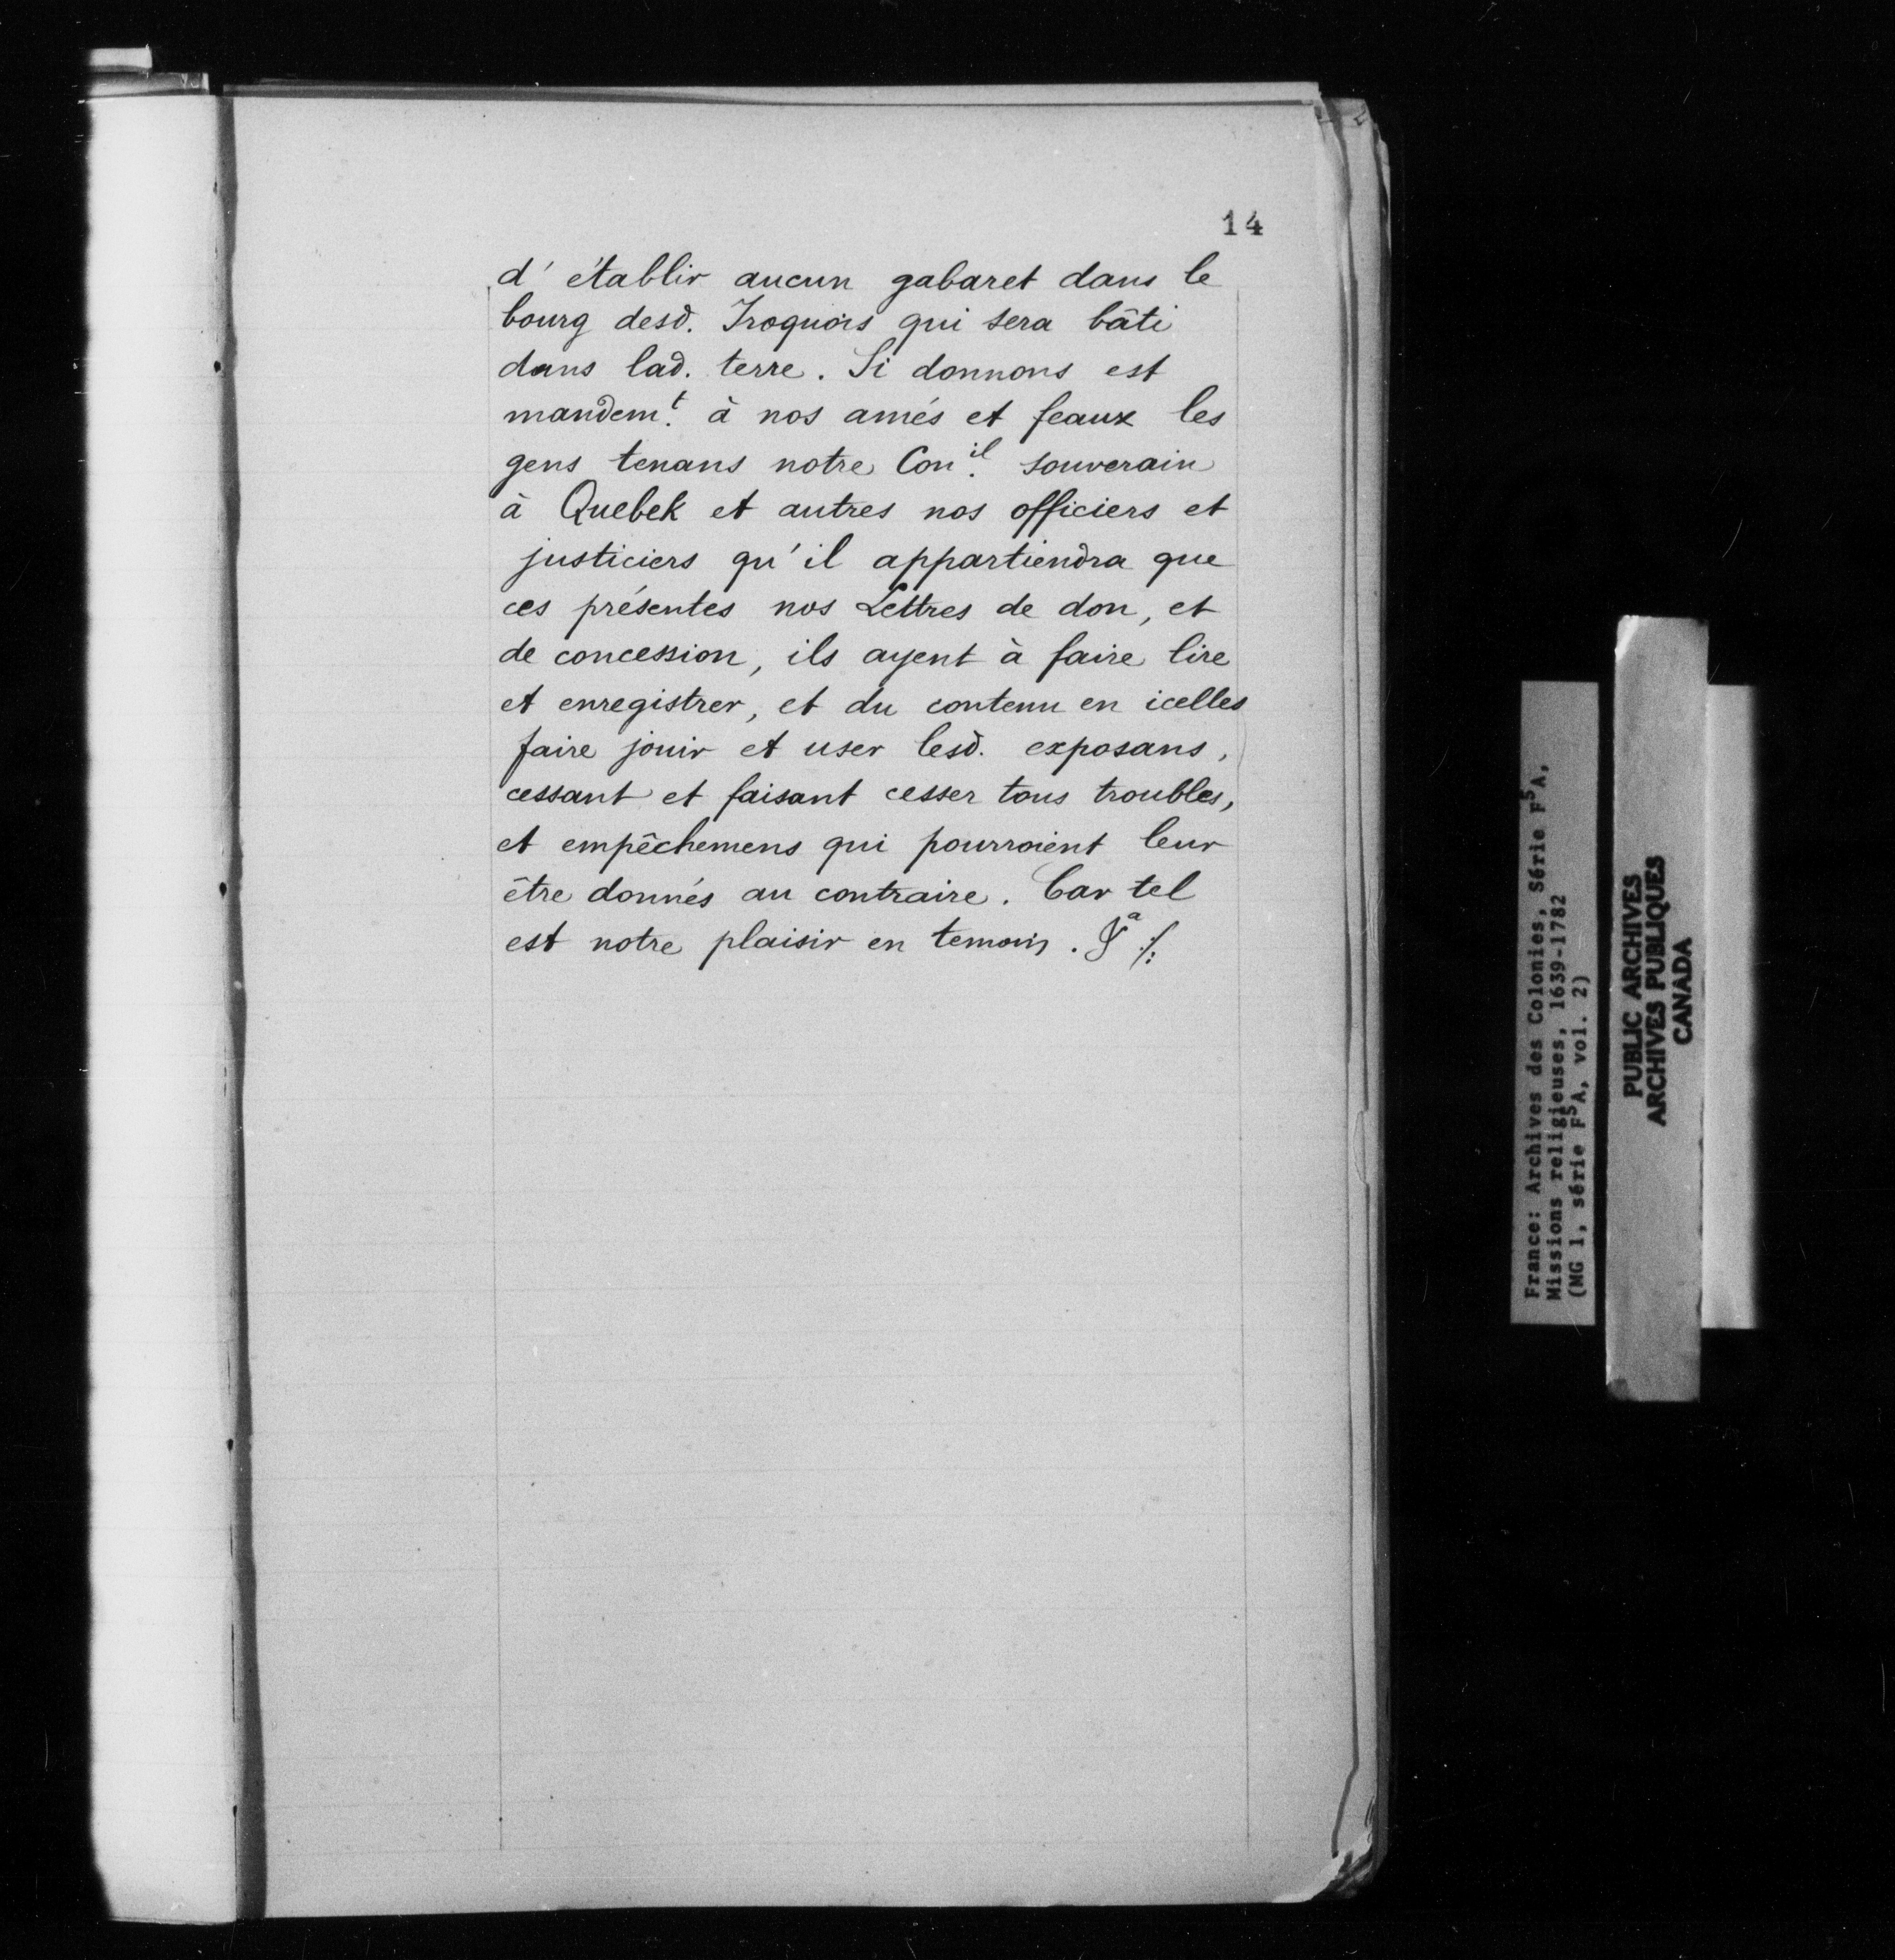 14
d'établir aucun gabaret dans le
bourg desd. Iroquois qui sera bâti
dans lad. terre. Si donnons est
mandem.t à nos amés et feaux les
gens tenans notre Con.il souverain
à Quebek et autres nos officiers et
justiciers qu'il appartiendra que
ces présentes nos Lettres de don, et
de concession, ils ayent à faire lire
et enregistrer, et du contenu en icelles
faire jouir et user lesd. exposans,
cessant et faisant cesser tous troubles,
et empêchemens qui pourroient leur
être donnés au contraire. Car tel
est notre plaisir en temoin.
France: Archives des Colonies, Série F5A,
Missions religieuses, 1639-1782
(MG 1, série F5A, vol. 2)
PUBLIC ARCHIVES
ARCHIVES PUBLIQUES
CANADA